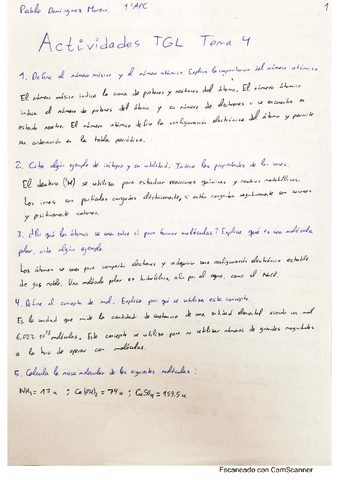 Pablo Domínguez Moreno, 1ºAPC 1
Actividades TGL Tema 4
1. Define el número másico y el número atómico. Explica la importancia del número atómico.
El número másico indica la suma de protones y neutrones del átomo. El número atómico
indica el número de protones del átomo y su número de electrones si se encuentra en
estado neutro. El número atómico define la configuración electrónica del átomo y permite
su ordenación en la tabla periódica.
2. Cita algún ejemplo de isótopo y su utilidad. Indica las propiedades de los iones.
El deuterio (²H) se utiliza para estudiar reacciones químicas y cambios metabólicos.
Los iones son partículas cargadas eléctricamente, si están cargados negativamente son aniones
y positivamente cationes.
3. ¿Por qué los átomos se unen entre sí para formar moléculas? Explica qué es una molécula
polar, cita algún ejemplo.
Los átomos se unen para compartir electrones y adquirir una configuración electrónica estable
de gas noble. Una molécula polar es hidrófila, afín por el agua, como el NaCl.
4. Define el concepto de mol. Explica por qué se utiliza este concepto.
Es la unidad que mide la cantidad de sustancia de una entidad elemental siendo un mol
6,023·10²³ moléculas. Este concepto se utiliza para no utilizar números de grandes magnitudes
a la hora de operar con moléculas.
5. Calcula la masa molecular de las siguientes moléculas:
NH₃ = 17 u ; Ca(OH)₂ = 74 u ; CuSO₄ = 159.5 u
Escaneado con CamScanner